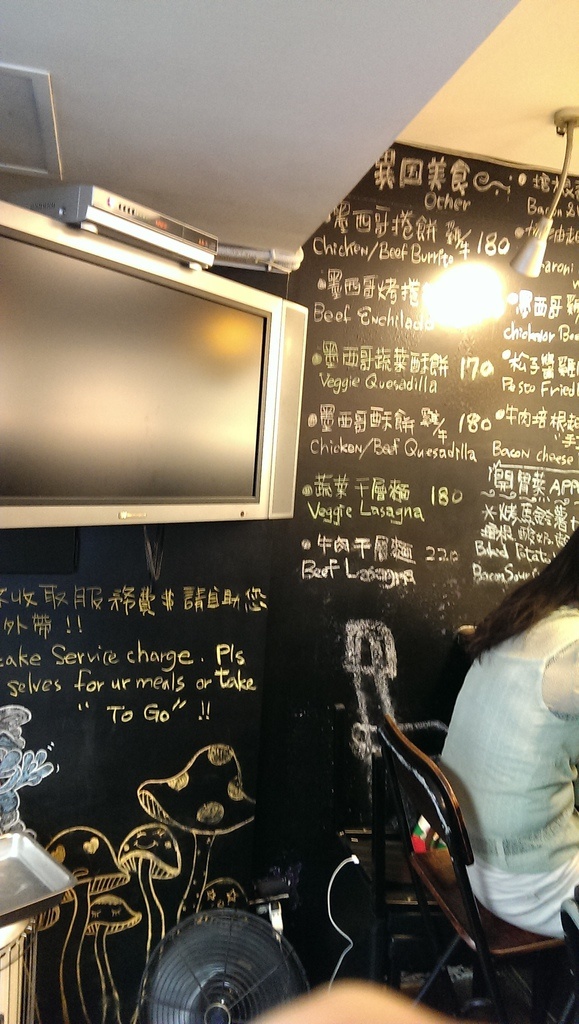 異国美食
Other
墨西哥捲餅 雞/牛 180
Chicken/Beef Burrito
墨西哥烤捲
Beef Enchilada
墨西哥蔬菜酥餅 170
Veggie Quesadilla
墨西哥酥餅 雞/牛 180
Chicken/Beef Quesadilla
蔬菜千層麵 180
Veggie Lasagna
牛肉千層麵 220
Beef Lasagna
Bacon &
aroni
墨西哥雞
chicken or
松子醬雞
Pesto Fried
牛肉培根
Bacon cheese
開胃菜 APP
烤馬鈴薯
Baked Potato
Bacon Sour
收取服務費※請自助您
外帶!!
take Service charge. Pls
selves for ur meals or take
"TO GO" !!